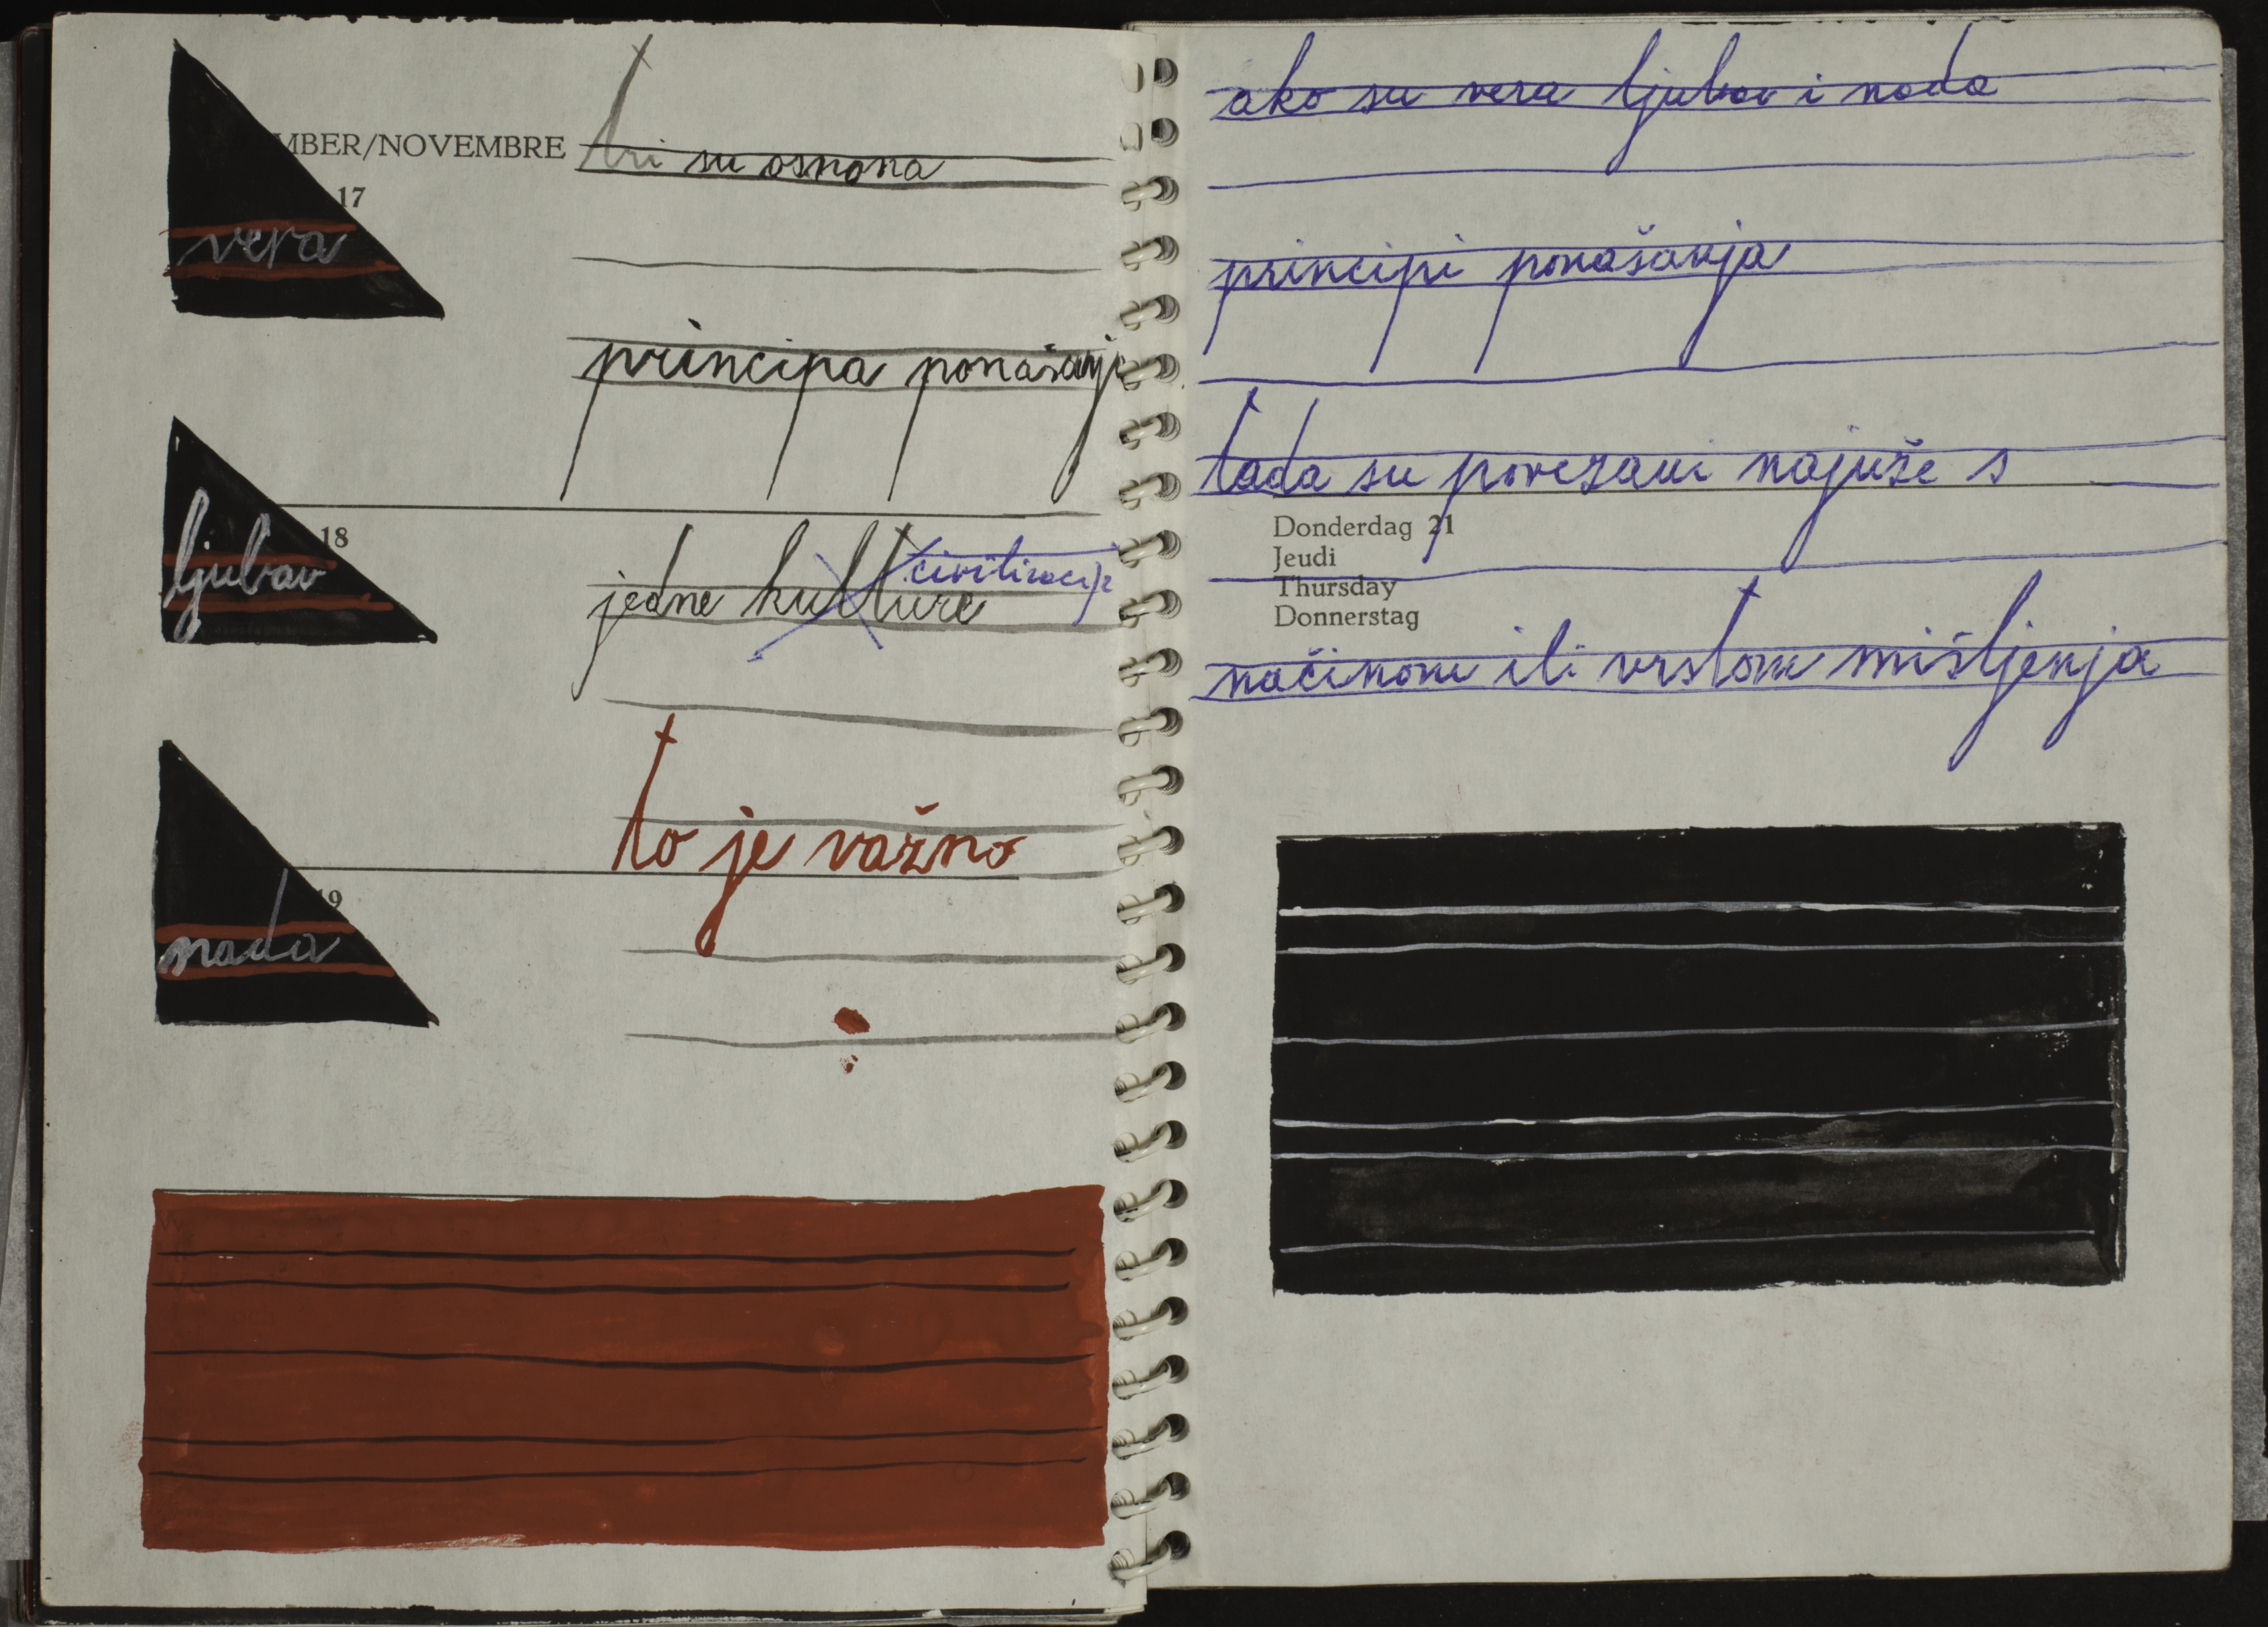 MBER/NOVEMBRE
tri su osnovna
17
vera
principa ponašanja
18
ljubav
jedne kulture
civilizacije
to je važno
19
nada
ako su vera ljubav i nada
principi ponašanja
tada su povezani najuže s
Donderdag 21
Jeudi
Thursday
Donnerstag
načinom ili vrstom mišljenja